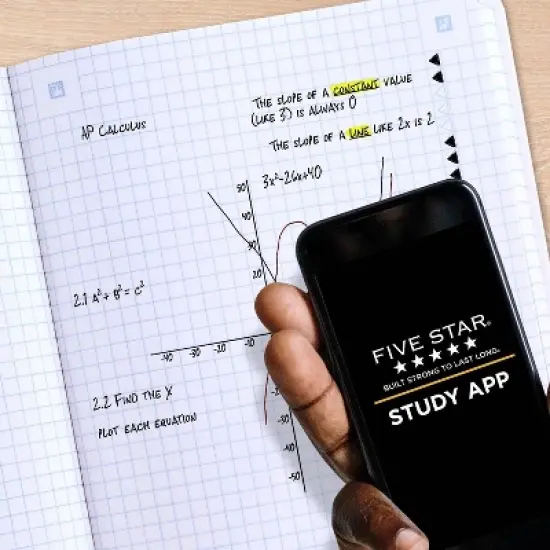 AP CALCULUS
THE SLOPE OF A CONSTANT VALUE
(LIKE 3) IS ALWAYS 0
THE SLOPE OF A LINE LIKE 2x IS 2
3x²-26x+40
50
40
30
20
2.1 A² + B² = C²
-40 -30 -20 -10
2.2 FIND THE X
PLOT EACH EQUATION
-30
-40
-50
FIVE STAR®
BUILT STRONG TO LAST LONG.
STUDY APP